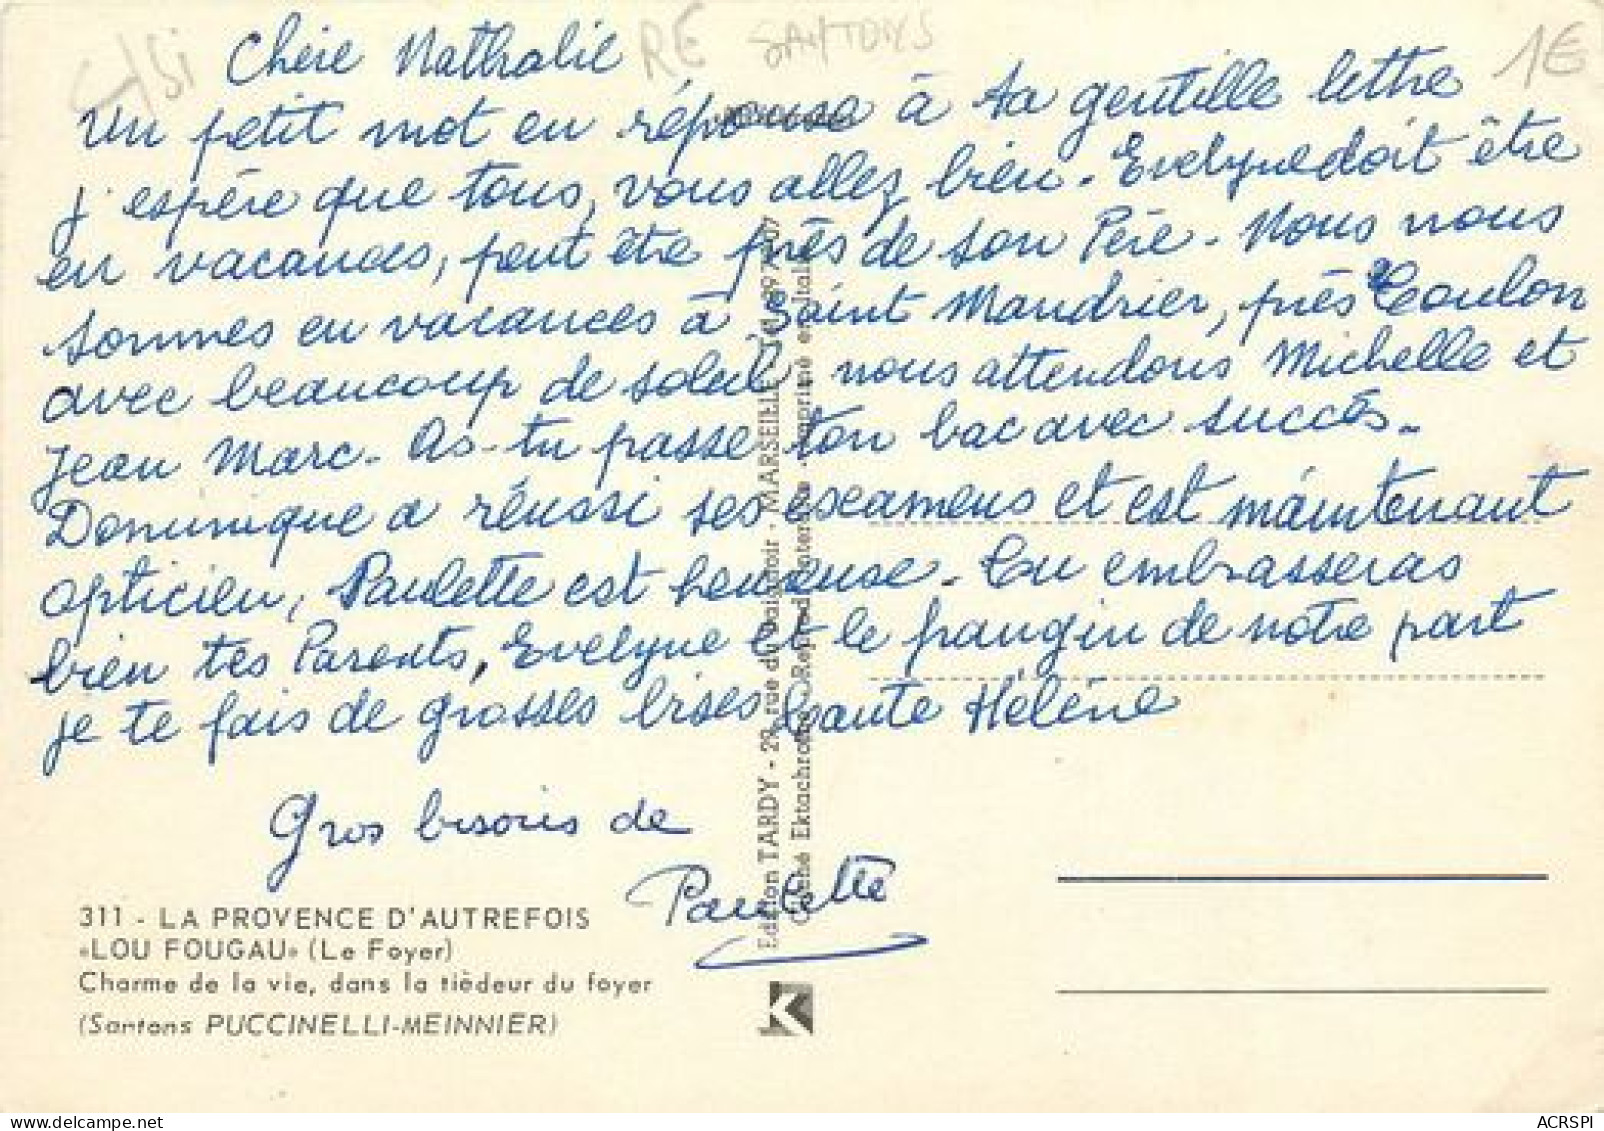 RE SANTONS
1€
Chère Nathalie
Un petit mot en réponse à ta gentille lettre
j'espère que tous, vous allez bien. Evelyne doit être
en vacances, peut être près de son Père. Nous nous
sommes en vacances à Saint Mandrier, près Toulon
avec beaucoup de soleil, nous attendons Michelle et
Jean Marc. As-tu passé ton bac avec succès.
Dominique a réussi ses examens et est maintenant
opticien, Paulette est heureuse. Tu embrasseras
bien tes Parents, Evelyne et le frangin de notre part
je te fais de grosses bises tante Hélène
Gros bisous de
Paulette
311 - LA PROVENCE D'AUTREFOIS
«LOU FOUGAU» (Le Foyer)
Charme de la vie, dans la tièdeur du foyer
(Santons PUCCINELLI-MEINNIER)
Edition TARDY - 29, rue du - MARSEILLE
Cliché Ektachrome, Reprod. - Imprimé en Italie
K
ACRSPI